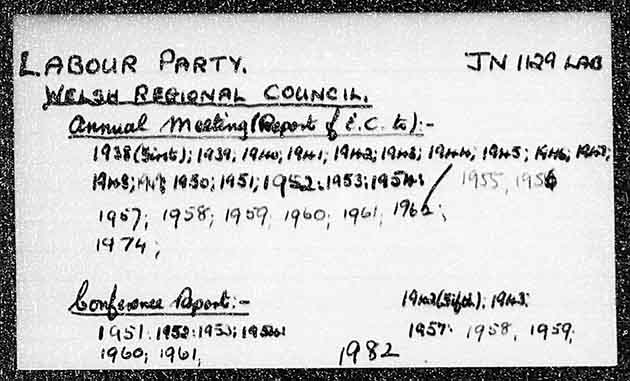 LABOUR PARTY. JN 1129 LAB
WELSH REGIONAL COUNCIL.
Annual Meeting (Report of E.C. to):-
1938 (First); 1939; 1940; 1941; 1942; 1943; 1944; 1945; 1946; 1947;
1948; 1949; 1950; 1951; 1952; 1953; 1954; 1955, 1956
1957; 1958; 1959, 1960; 1961, 1962;
1974;
Conference Report:- 1942 (Fifth); 1943;
1951; 1952; 1953; 1957; 1958, 1959,
1960; 1961,
1982